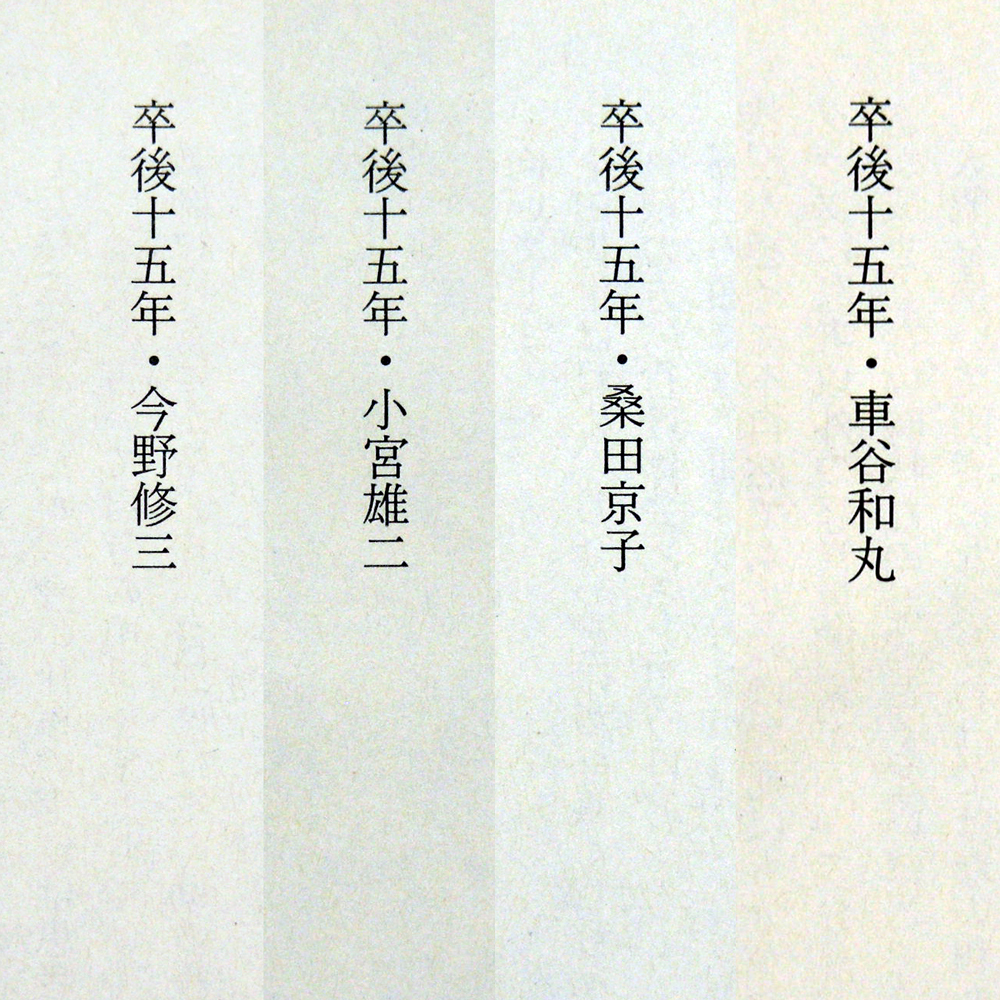 卒後十五年・車谷和丸
卒後十五年・桑田京子
卒後十五年・小宮雄二
卒後十五年・今野修三